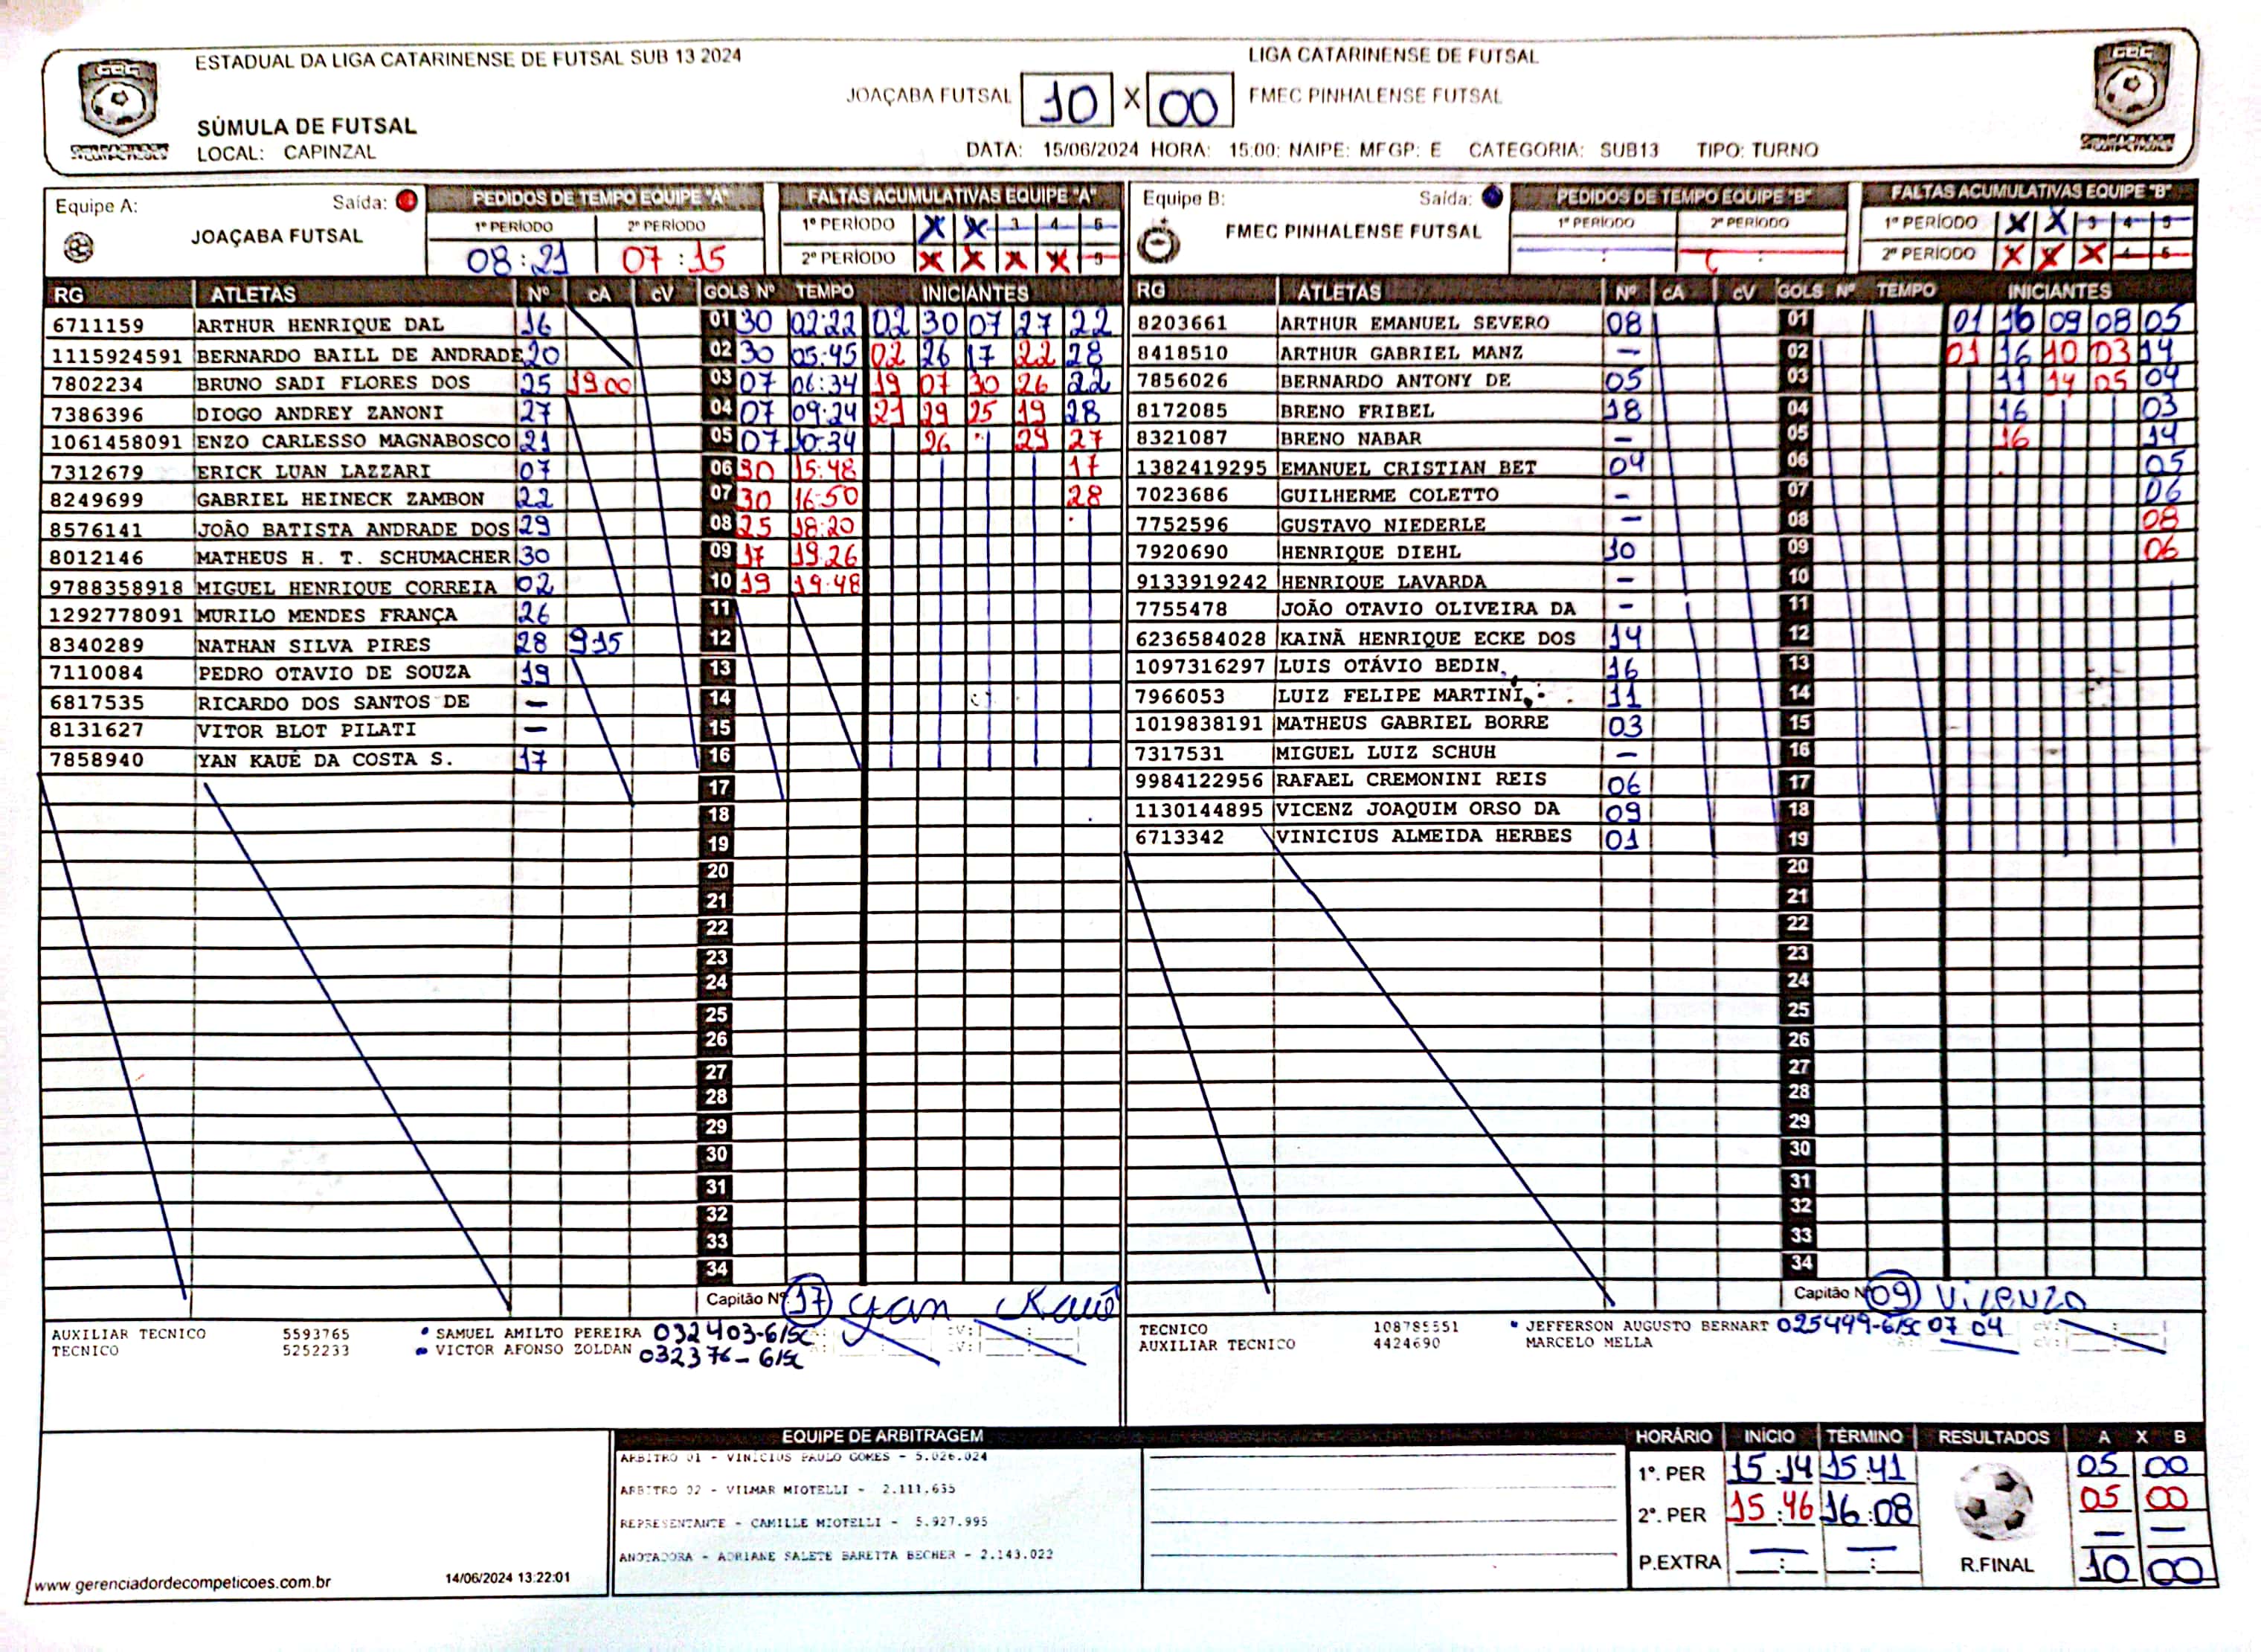 ESTADUAL DA LIGA CATARINENSE DE FUTSAL SUB 13 2024
LIGA CATARINENSE DE FUTSAL
JOAÇABA FUTSAL 10 X 00 FMEC PINHALENSE FUTSAL
SÚMULA DE FUTSAL
LOCAL: CAPINZAL
DATA: 15/06/2024 HORA: 15:00: NAIPE: MFGP: E CATEGORIA: SUB13 TIPO: TURNO
Equipe A: Saída:
JOAÇABA FUTSAL
PEDIDOS DE TEMPO EQUIPE "A"
1º PERÍODO 2º PERÍODO
08:21 07:15
FALTAS ACUMULATIVAS EQUIPE "A"
1º PERÍODO X X 3 4 5
2º PERÍODO X X X X 5
RG ATLETAS Nº cA cV GOLS Nº TEMPO INICIANTES
6711159 ARTHUR HENRIQUE DAL 16 01 30 02:22 02 30 07 27 22
1115924591 BERNARDO BAILL DE ANDRADE 20 02 30 05:45 02 26 17 22 28
7802234 BRUNO SADI FLORES DOS 25 19 00 03 07 06:34 19 07 30 26 22
7386396 DIOGO ANDREY ZANONI 27 04 07 09:24 21 29 25 19 28
1061458091 ENZO CARLESSO MAGNABOSCO 21 05 07 10:34 26 29 27
7312679 ERICK LUAN LAZZARI 07 06 30 15:48 17
8249699 GABRIEL HEINECK ZAMBON 22 07 30 16:50 28
8576141 JOÃO BATISTA ANDRADE DOS 29 08 25 18:20
8012146 MATHEUS H. T. SCHUMACHER 30 09 17 19:26
9788358918 MIGUEL HENRIQUE CORREIA 02 10 19 19:48
1292778091 MURILO MENDES FRANÇA 26 11
8340289 NATHAN SILVA PIRES 28 9 15 12
7110084 PEDRO OTAVIO DE SOUZA 19 13
6817535 RICARDO DOS SANTOS DE — 14
8131627 VITOR BLOT PILATI — 15
7858940 YAN KAUÊ DA COSTA S. 17 16
17
18
19
20
21
22
23
24
25
26
27
28
29
30
31
32
33
34
Capitão Nº 17 Yan Kauê
AUXILIAR TECNICO 5593765 SAMUEL AMILTO PEREIRA 032403-G/SC
TECNICO 5252233 VICTOR AFONSO ZOLDAN 032376-G/SC
Equipe B: Saída:
FMEC PINHALENSE FUTSAL
PEDIDOS DE TEMPO EQUIPE "B"
1º PERÍODO 2º PERÍODO
FALTAS ACUMULATIVAS EQUIPE "B"
1º PERÍODO X X 3 4 5
2º PERÍODO X X X 4 5
RG ATLETAS Nº cA cV GOLS Nº TEMPO INICIANTES
8203661 ARTHUR EMANUEL SEVERO 08 01 01 10 09 08 05
8418510 ARTHUR GABRIEL MANZ — 02 01 16 10 03 14
7856026 BERNARDO ANTONY DE 05 03 11 14 05 04
8172085 BRENO FRIBEL 18 04 16 03
8321087 BRENO NABAR — 05 16 14
1382419295 EMANUEL CRISTIAN BET 04 06 05
7023686 GUILHERME COLETTO — 07 06
7752596 GUSTAVO NIEDERLE — 08 08
7920690 HENRIQUE DIEHL 10 09 06
9133919242 HENRIQUE LAVARDA — 10
7755478 JOÃO OTAVIO OLIVEIRA DA — 11
6236584028 KAINÃ HENRIQUE ECKE DOS 14 12
1097316297 LUIS OTÁVIO BEDIN 16 13
7966053 LUIZ FELIPE MARTINI 11 14
1019838191 MATHEUS GABRIEL BORRE 03 15
7317531 MIGUEL LUIZ SCHUH — 16
9984122956 RAFAEL CREMONINI REIS 06 17
1130144895 VICENZ JOAQUIM ORSO DA 09 18
6713342 VINICIUS ALMEIDA HERBES 01 19
20
21
22
23
24
25
26
27
28
29
30
31
32
33
34
Capitão Nº 09 Vicenzo
TECNICO 108785551 JEFFERSON AUGUSTO BERNART 025499-G/SC 07 04 cV:
AUXILIAR TECNICO 4424690 MARCELO MELLA cA: cV:
www.gerenciadordecompeticoes.com.br 14/06/2024 13:22:01
EQUIPE DE ARBITRAGEM
ARBITRO 01 - VINICIUS PAULO GOMES - 5.026.024
ARBITRO 02 - VILMAR MIOTELLI - 2.111.635
REPRESENTANTE - CAMILLE MIOTELLI - 5.927.995
ANOTADORA - ADRIANE SALETE BARETTA BECHER - 2.143.022
HORÁRIO INÍCIO TÉRMINO RESULTADOS A X B
1º. PER 15:14 15:41 05 00
2º. PER 15:46 16:08 05 00
P.EXTRA — : — — : — — —
R.FINAL 10 00